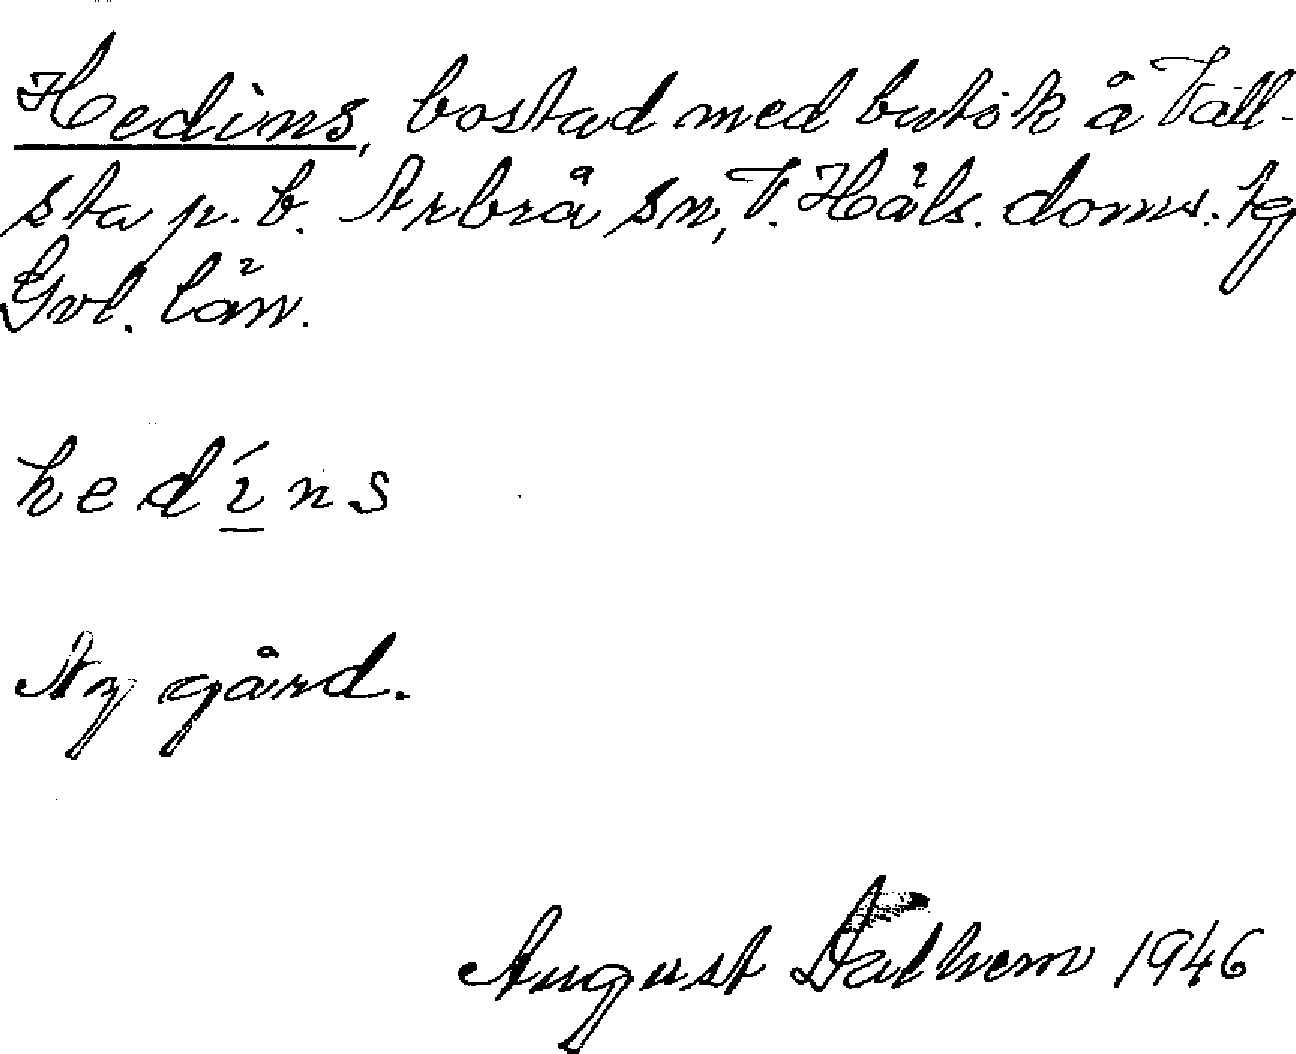 Hedins, bostad med butik å Väll-
sta p. b. Arbrå sn, V. Häls. doms. tg
Gvl. län.
hedíns
Ny gård.
August Dalhem 1946